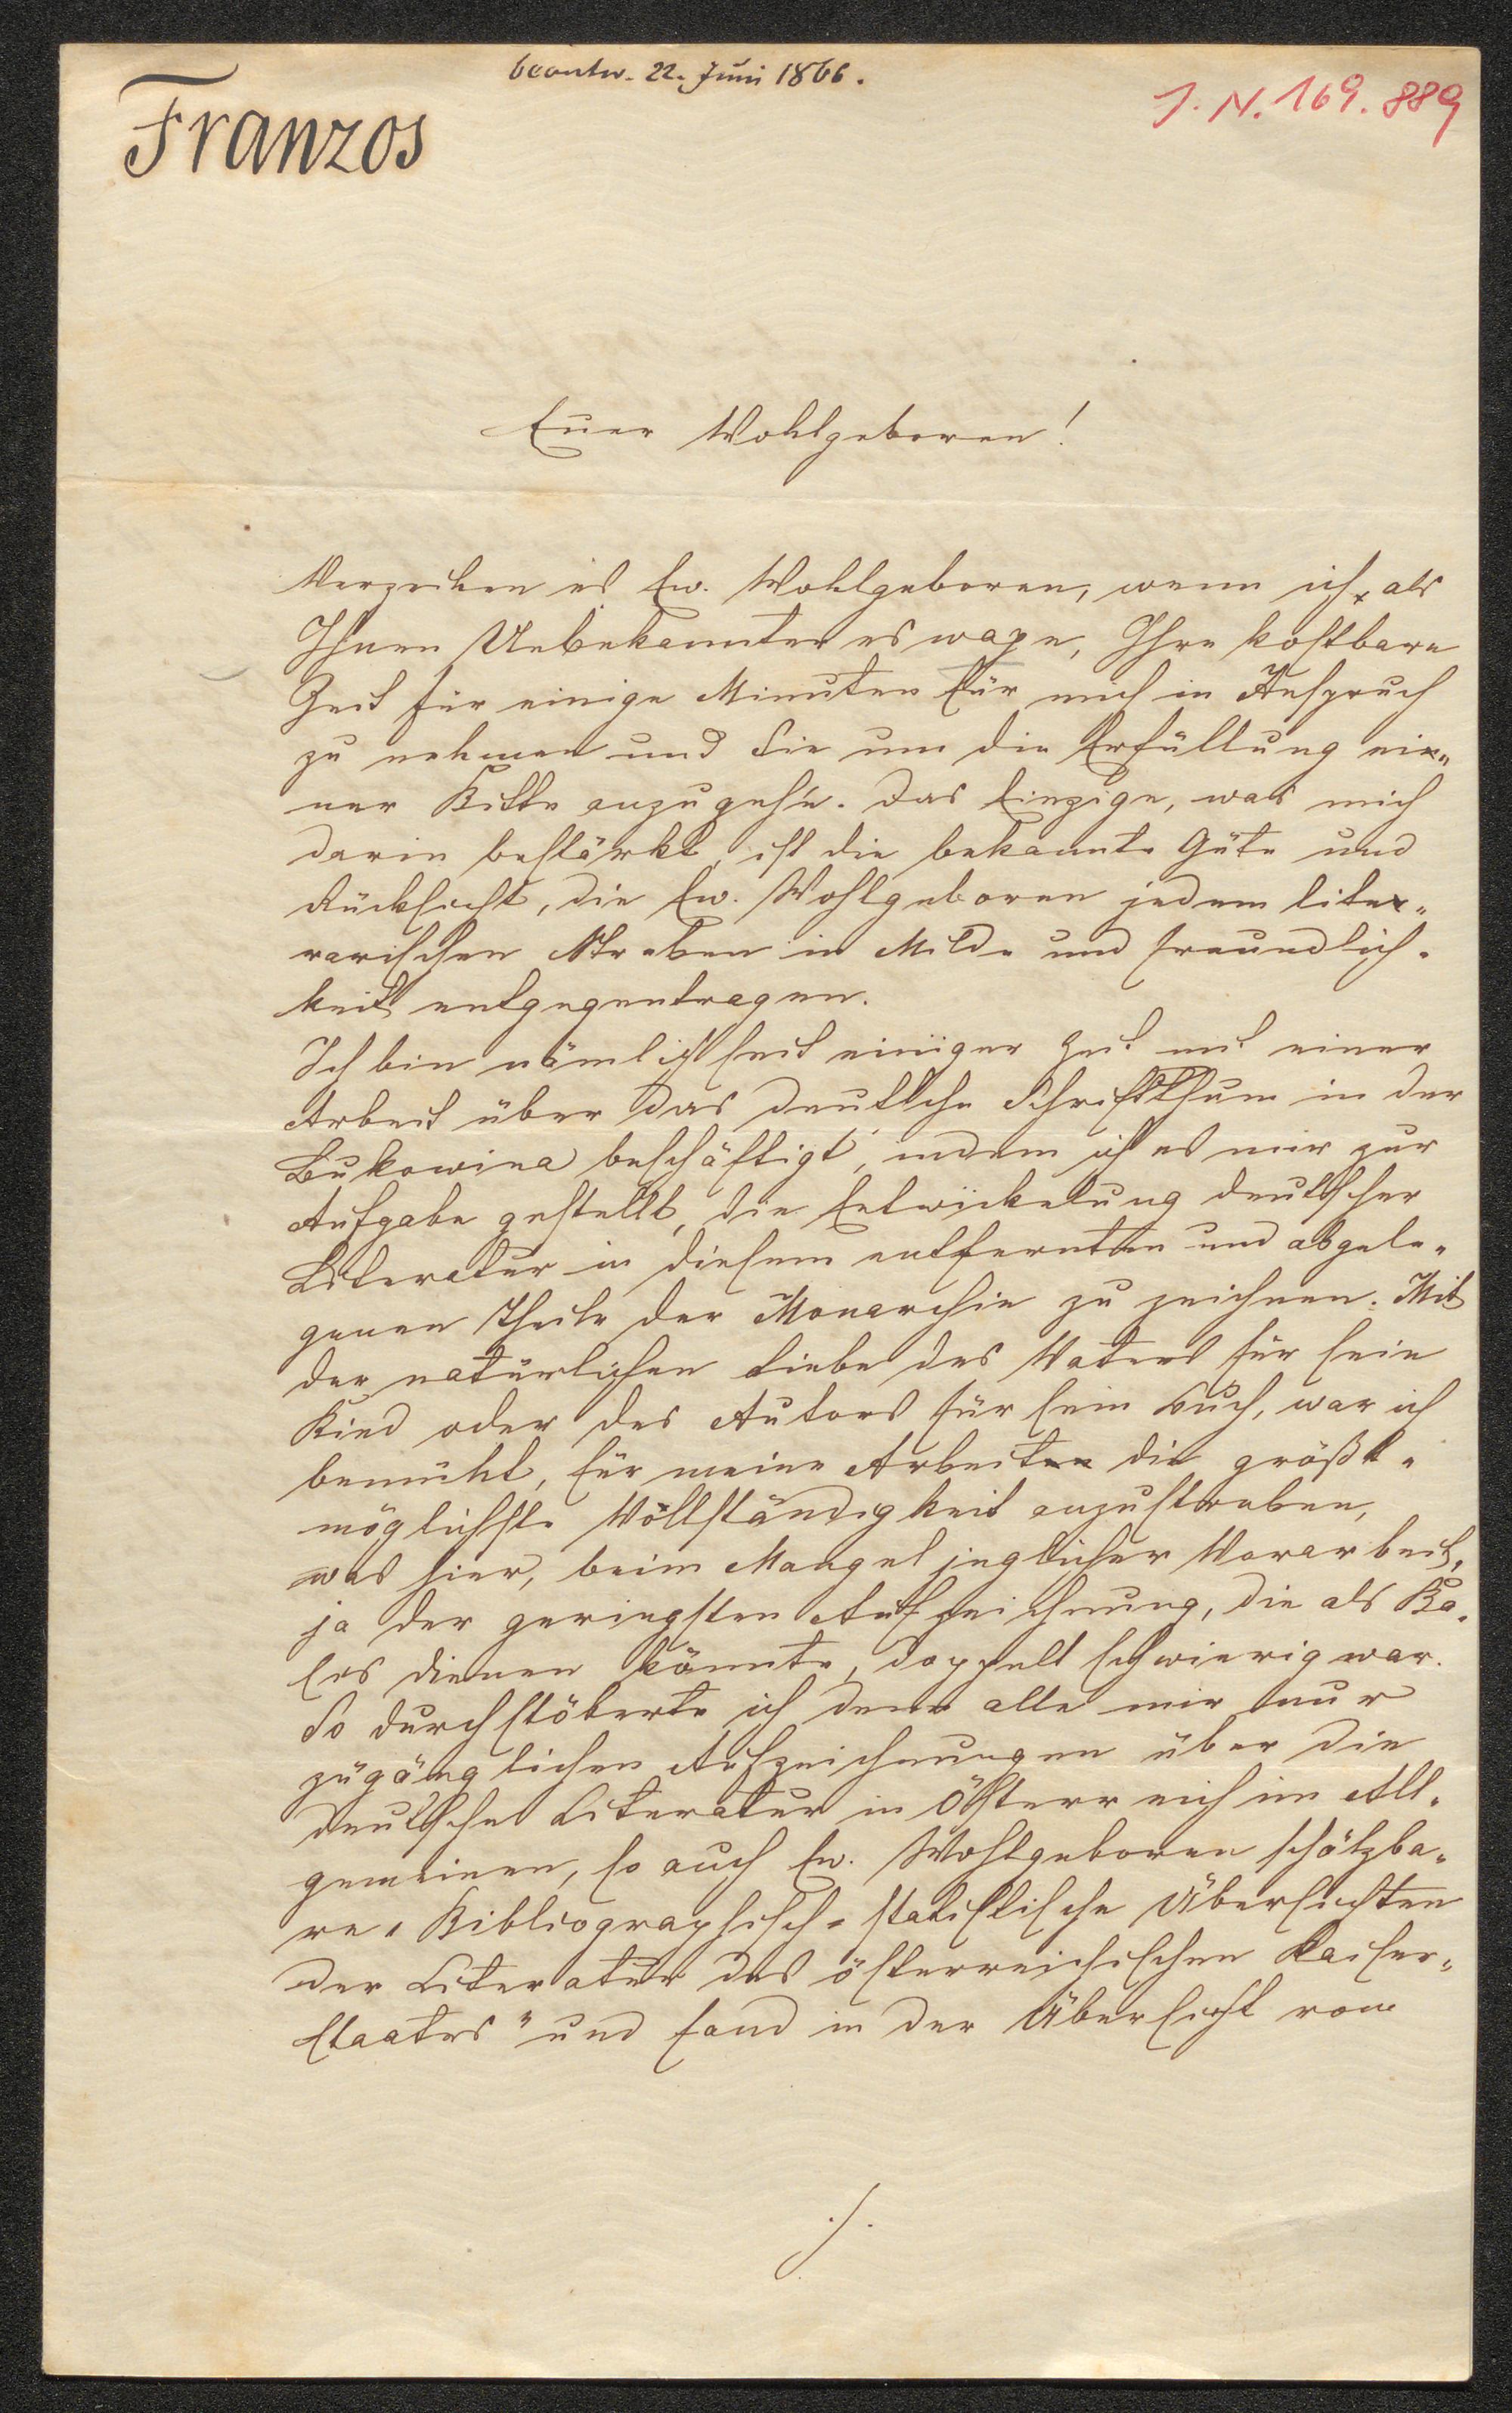 beantw. 22. Juni 1866.
J. N. 169.889
Franzos
Euer Wohlgeboren!
Verzeihen es Ew. Wohlgeboren, wenn ich als
Ihnen Unbekannter es wage, Ihre kostbare
Zeit für einige Minuten für mich in Anspruch
zu nehmen und Sie um die Erfüllung ei-
ner Bitte anzugeh'n. Das Einzige, was mich
darin bestärkt, ist die bekannte Güte und
Rücksicht, die Ew. Wohlgeboren jedem lite-
rarischen Streben in Milde und Freundlich-
keit entgegentragen.
Ich bin nämlich seit einiger Zeit mit einer
Arbeit über das deutsche Schriftthum in der
Bukowina beschäftigt, indem ich es mir zur
Aufgabe gestellt, die Entwickelung deutscher
Literatur in diesem entfernten und abgele-
genen Theile der Monarchie zu zeichnen. Mit
der natürlichen Liebe des Vaters für sein
Kind oder des Autors für sein Buch, war ich
bemüht, für meine Arbeit die größt-
möglichste Vollständigkeit anzustreben,
was hier, beim Mangel jeglicher Vorarbeit,
ja der geringsten Aufzeichnung, die als Ba-
sis dienen könnte, doppelt schwierig war.
So durchstöberte ich denn alle mir nur
zugänglichen Aufzeichnungen über die
deutsche Literatur in Österreich im All-
gemeinen, so auch Ew. Wohlgeboren schätzba-
re "Bibliographisch-statistische Übersichten
der Literatur des österreichischen Kaiser-
staates" und fand in der Übersicht vom
./.